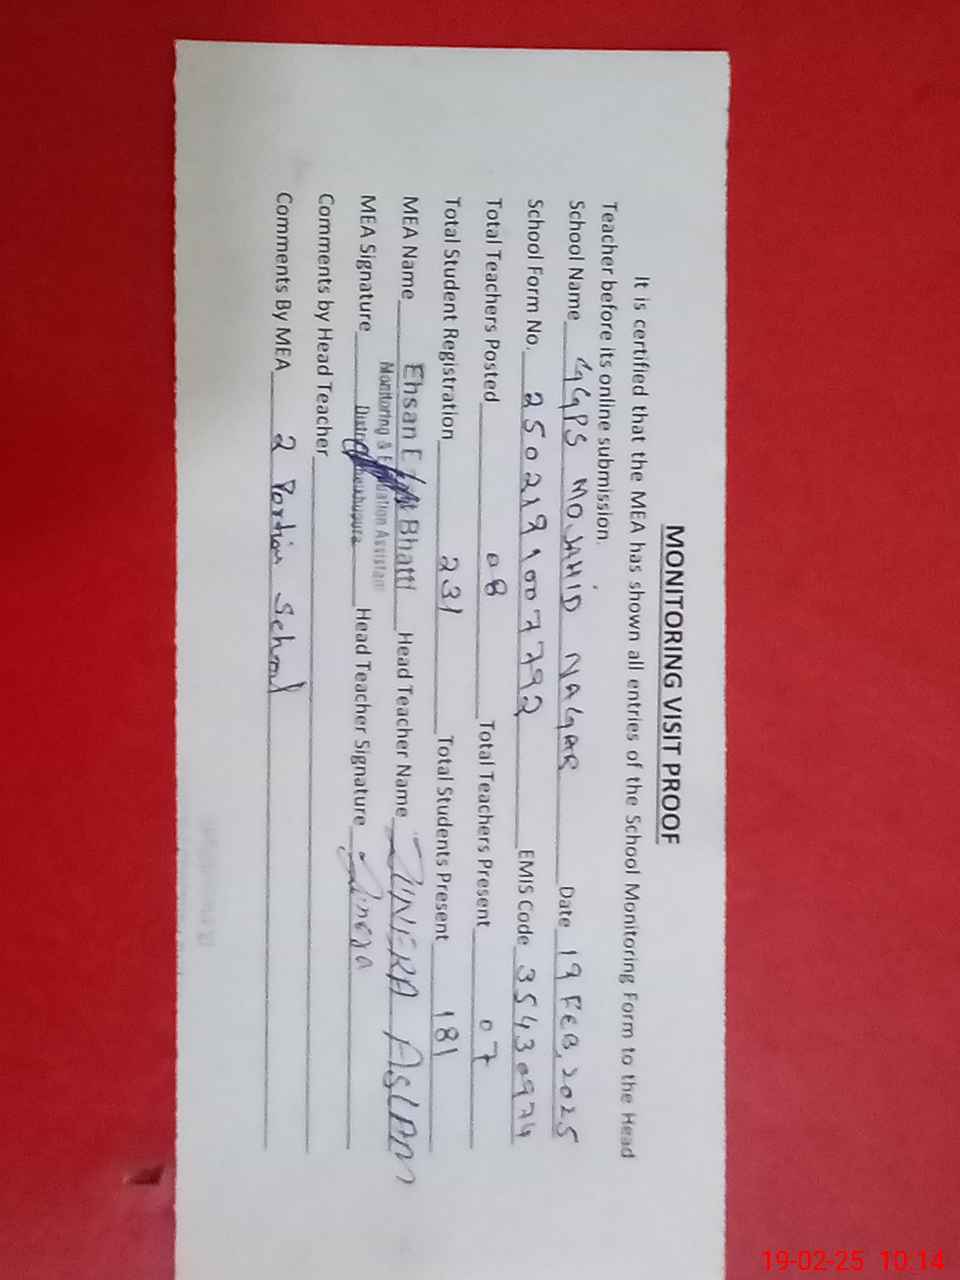 MONITORING VISIT PROOF
It is certified that the MEA has shown all entries of the School Monitoring Form to the Head
Teacher before its online submission.
School Name GGPS MOJAHID NAGAR Date 19 FEB, 2025
School Form No. 2502191007792 EMIS Code 35430974
Total Teachers Posted 08 Total Teachers Present 07
Total Student Registration 231 Total Students Present 181
MEA Name Ehsan Bhatti Head Teacher Name ZUNERA ASLAM
Monitoring & Evaluation Assistant
MEA Signature Head Teacher Signature Zunera
Comments by Head Teacher
Comments By MEA 2 Portion School
19-02-25 10:14